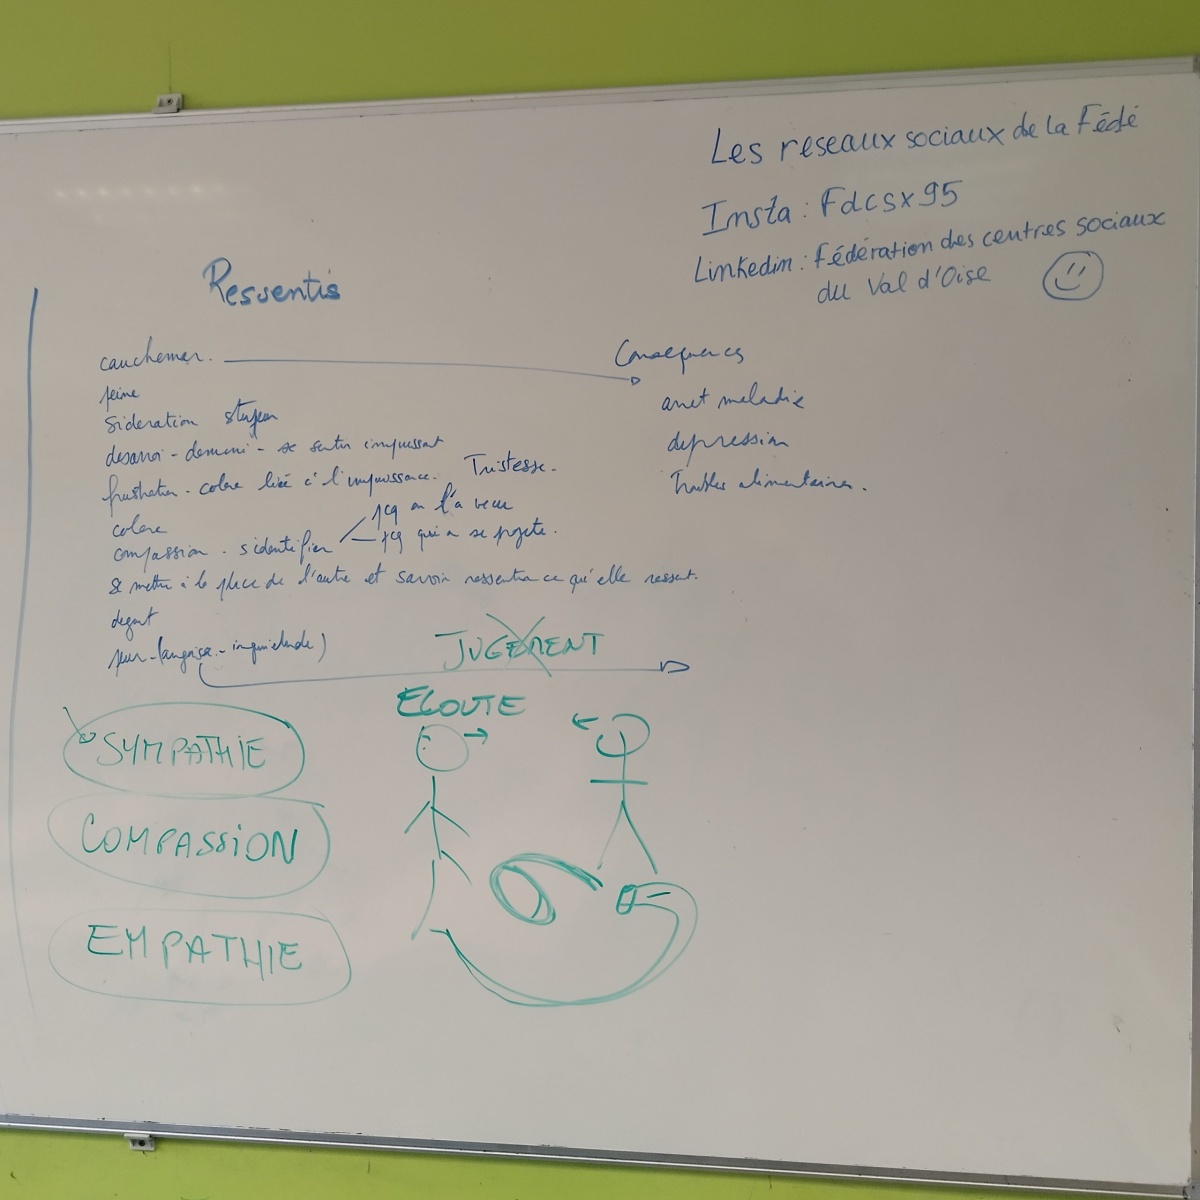 Les reseaux sociaux de la Fédé
Insta : Fdcsx95
Linkedin : Fédération des centres sociaux
du Val d'Oise
Ressentis
cauchemar.
peine
sideration stupeur
desarroi - demuni - se sentir impuissant
frustration - colere liée à l'impuissance. Tristesse.
colere
compassion - s'identifier
pcq on l'a vecu
pcq qu'on se projete.
se mettre à la place de l'autre et savoir ressentir ce qu'elle ressent.
degout
peur - (angoisse - inquietude)
Consequences
arret maladie
depression
Troubles alimentaires.
JUGEMENT
ECOUTE
SYMPATHIE
COMPASSION
EMPATHIE